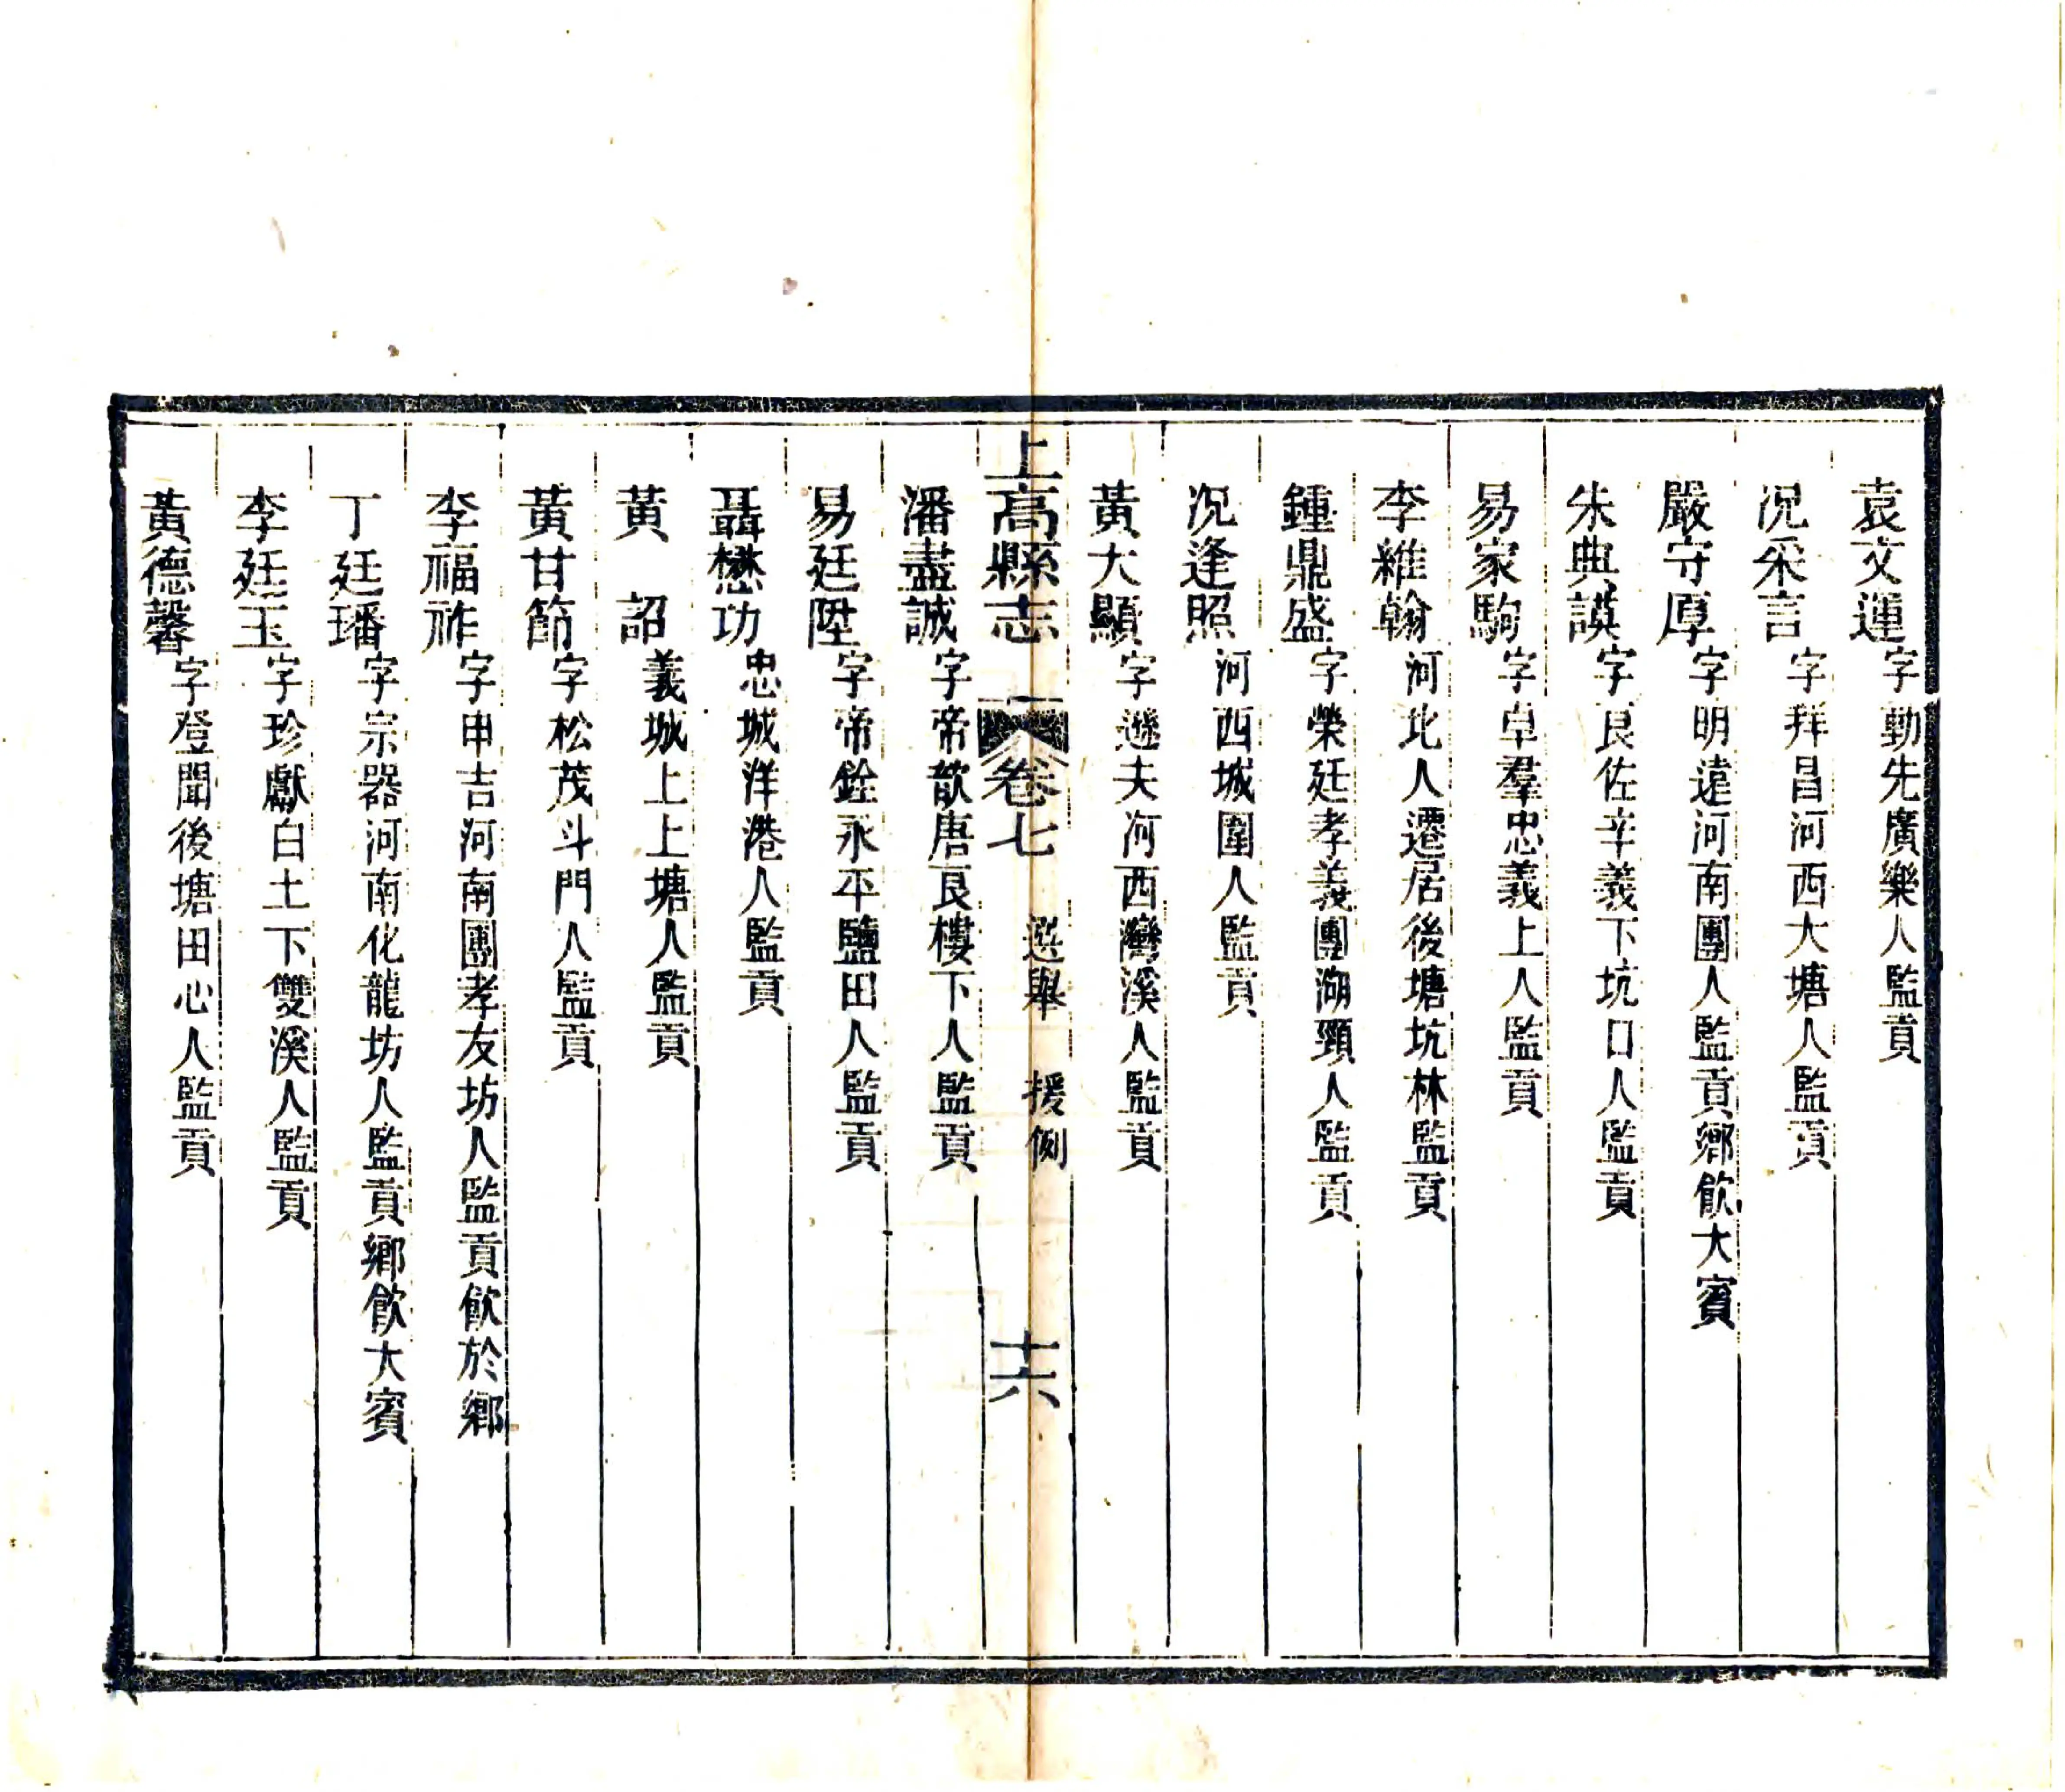 袁文運字勳先廣樂人監貢
况采言字拜昌河西大塘人監貢
嚴守厚字明遠河南團人監貢鄉飲大賓
朱典謨字良佐辛義下坑口人監貢
易家駒字卓羣忠義上人監貢
李維翰河北人遷居後塘坑林監貢
鍾鼎盛字榮廷孝義團湖頸人監貢
况逢照河西城圍人監貢
黃大顯字遜夫河西灣溪人監貢
上高縣志 卷七 選舉 援例 十六
潘盡誠字帝歆唐良樓下人監貢
易廷陞字帝銓永平鹽田人監貢
聶懋功忠城洋港人監貢
黃 詔義城上上塘人監貢
黃甘節字松茂斗門人監貢
李福祚字申吉河南團孝友坊人監貢飲於鄉
丁廷璠字宗器河南化龍坊人監貢鄉飲大賓
李廷玉字珍獻白土下雙溪人監貢
黃德馨字登聞後塘田心人監貢